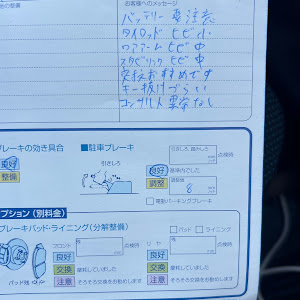 お客様へのメッセージ
バッテリー要注意
タイロッド ヒビ小
ロアアーム ヒビ中
スタビリンク ヒビ中
交換おすすめです
キー抜けづらい
コンサルト異常なし
ブレーキの効き具合
■駐車ブレーキ
良好
整備
引きしろ
引きしろ 踏みしろ
点検時
良好 基準内でした
調整
調整後
8
電動パーキングブレーキ
プション (別料金)
ブレーキパッド・ライニング(分解整備)
パッド
ライニング
フロント
リヤ
点検時
点検時
良好
良好
交換 摩耗していました
交換 摩耗していました
注意 そろそろ交換をお勧めします
注意 そろそろ交換をお勧めします
パッド残